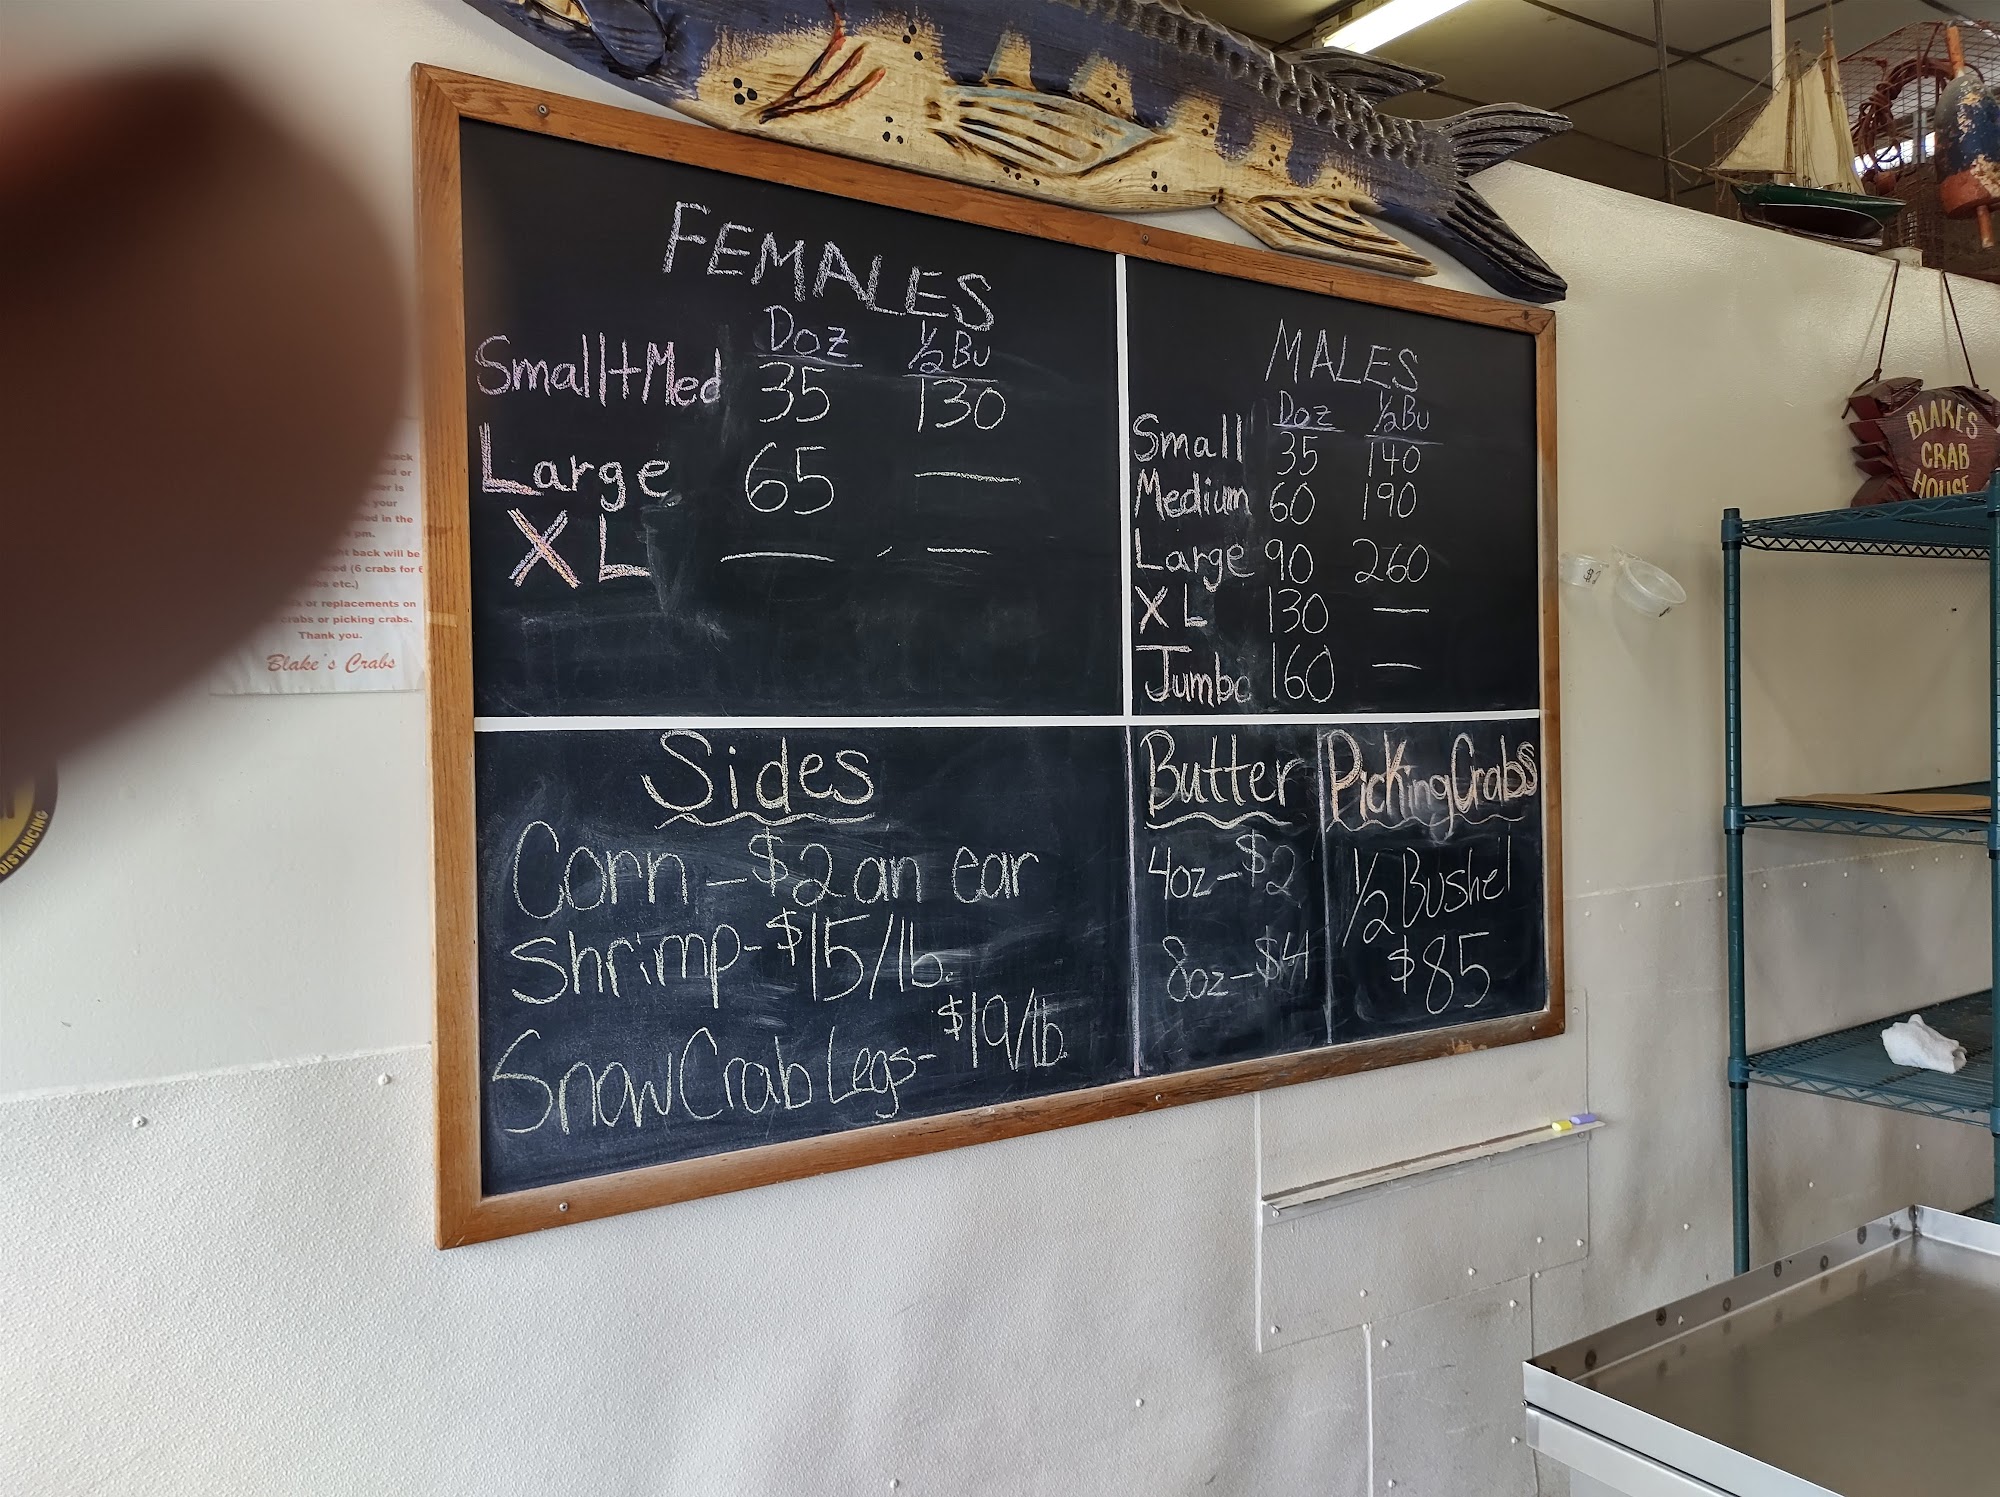 FEMALES
Doz ½ Bu
Small+Med 35 130
Large 65 —
XL — —
MALES
Doz ½ Bu
Small 35 140
Medium 60 190
Large 90 260
XL 130 —
Jumbo 160 —
Sides
Corn – $2 an ear
Shrimp – $15/lb.
Snow Crab Legs – $19/lb.
Butter
4oz – $2
8oz – $4
Picking Crabs
½ Bushel
$85
BLAKE'S
CRAB
HOUSE
back
or
er is
your
in the
pm.
back will be
(6 crabs for 6
etc.)
or replacements on
crabs or picking crabs.
Thank you.
Blake's Crabs
DISTANCING
$2